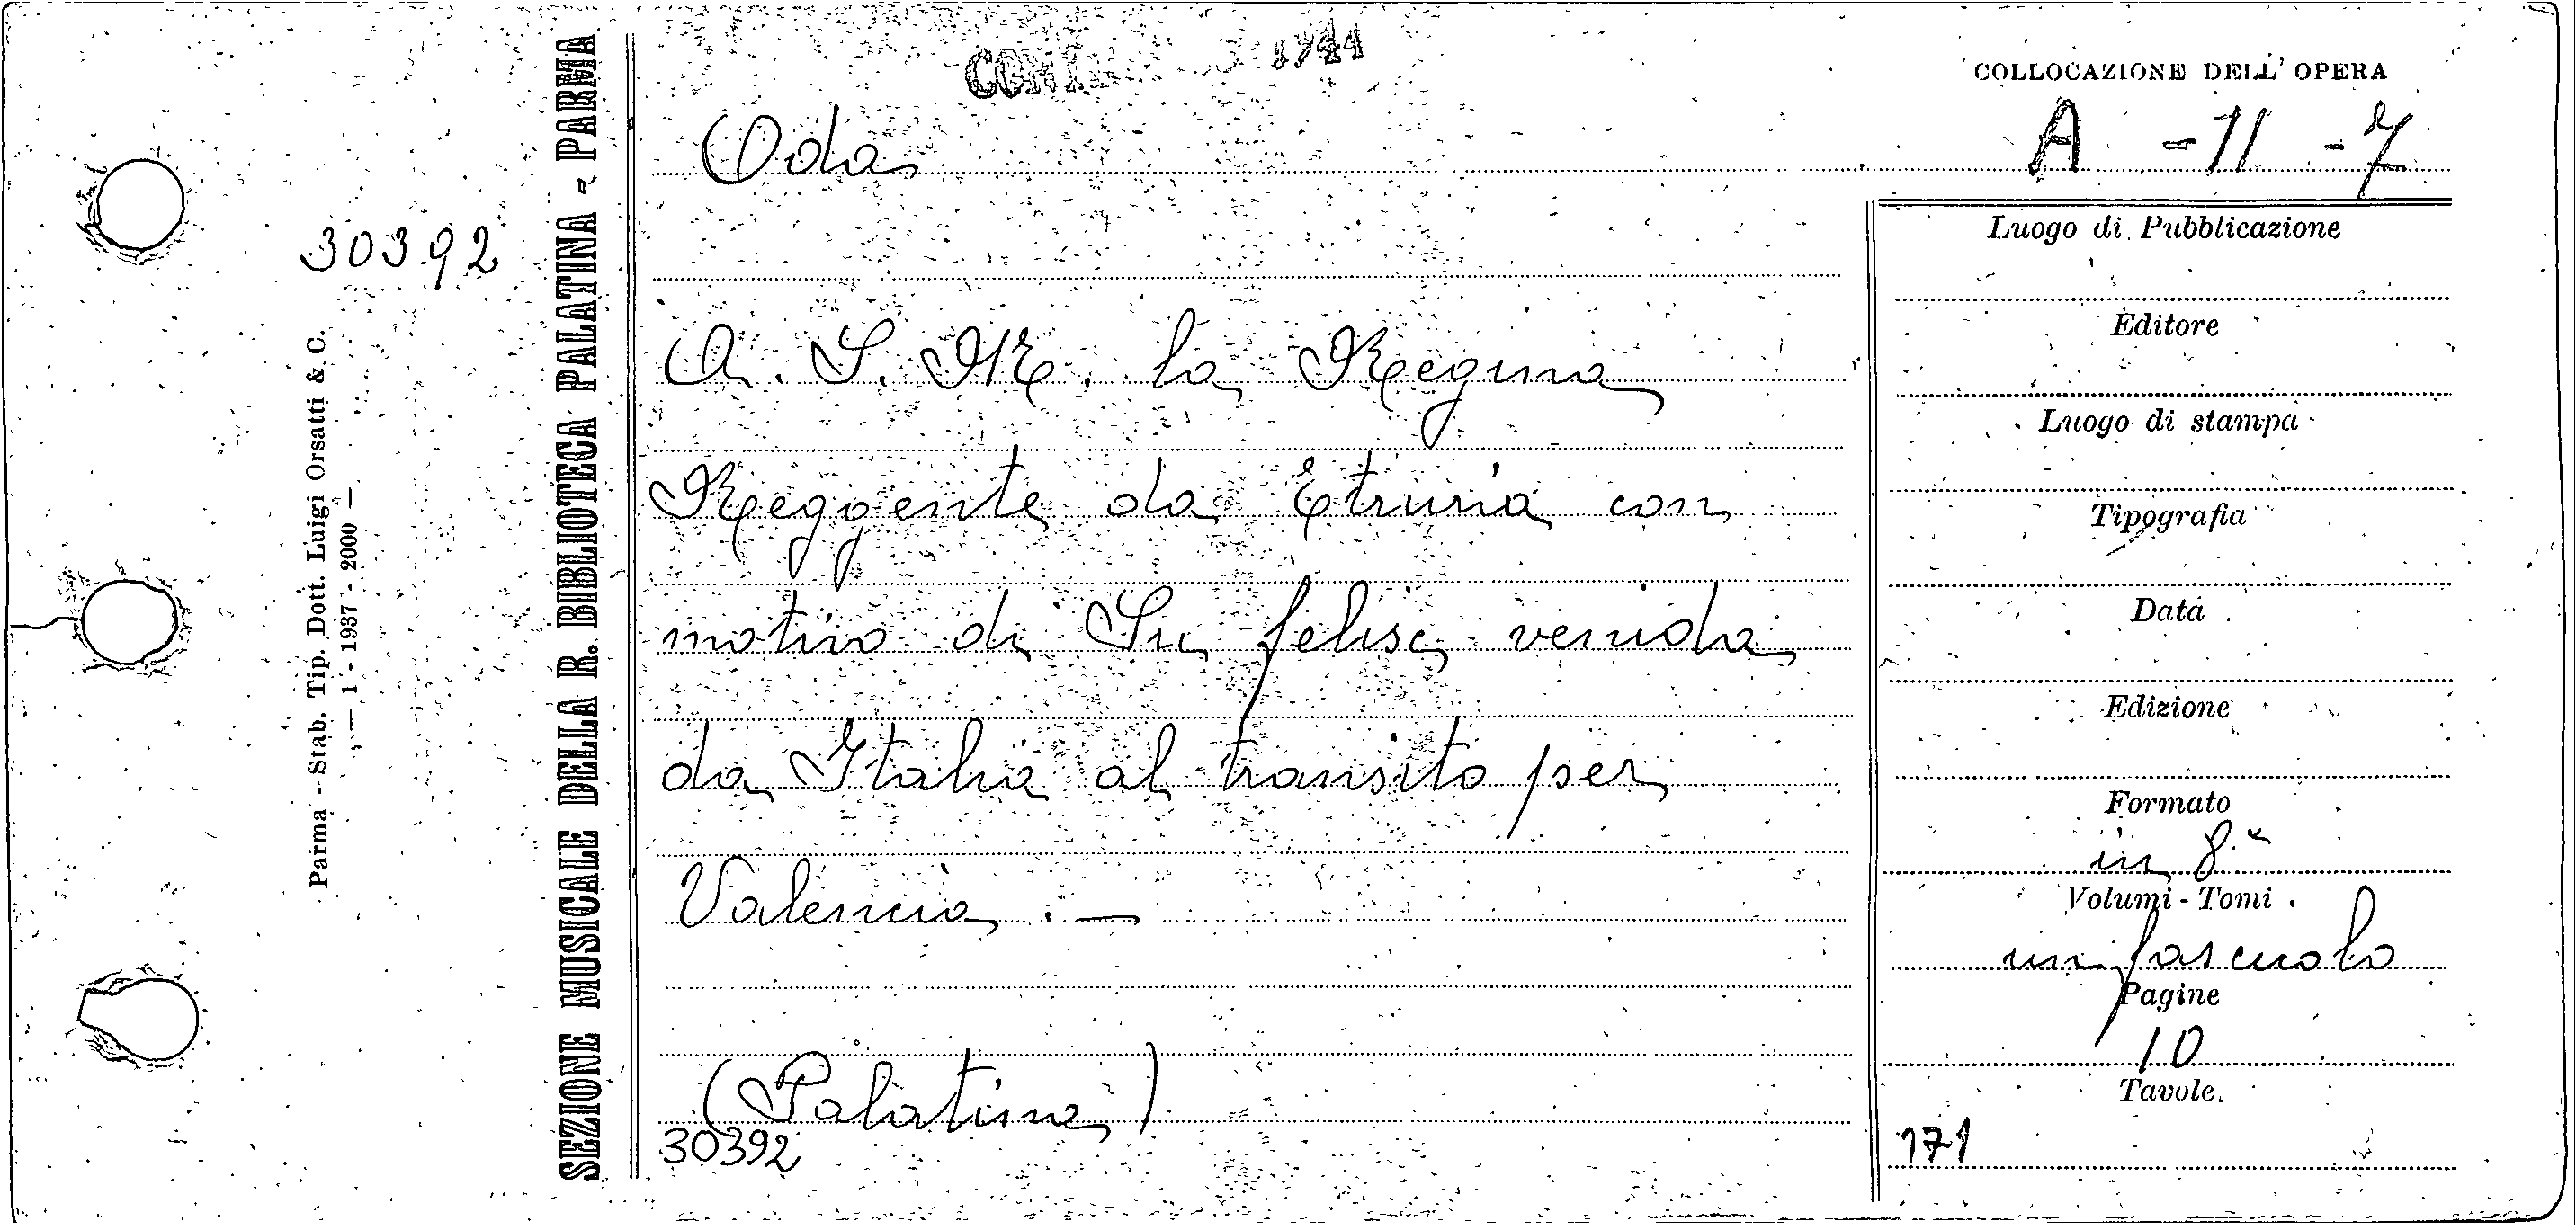 30392
Parma - Stab. Tip. Dott. Luigi Orsatti & C.
— 1 - 1937 - 2000 —
SEZIONE MUSICALE DELLA R. BIBLIOTECA PALATINA - PARMA
1941
Oda
A. S. M. la Regina
Reggente da Etruria con
motivo di Su felise venida
da Italia al transito per
Valencia . —
(Palatina)
30392
COLLOCAZIONE DELL' OPERA
A - II - 7
Luogo di Pubblicazione
Editore
Luogo di stampa
Tipografia
Data
Edizione
Formato
in 8.°
Volumi - Tomi
un fascicolo
Pagine
10
Tavole.
171